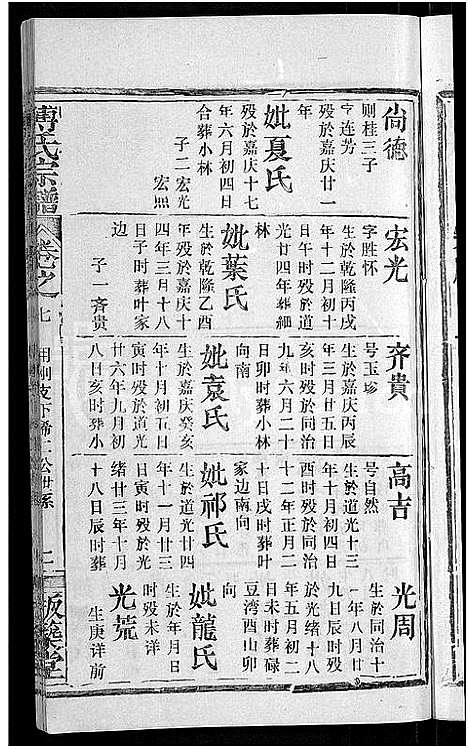 尚德
则桂三子
字连芳
殁於嘉庆廿一
年
妣夏氏
殁於嘉庆十七
年六月初四日
合葬小林
子二宏光
宏照
宏光
字胜怀
生於乾隆丙戌
年十二月初十
日午时殁於道
光廿四年葬細
林
妣葉氏
生於乾隆乙酉
年殁於嘉庆十
四年三月十八
日子时葬叶家
边
子一斉貴
齐貴
号玉珍
生於嘉庆丙辰
年三月廿五日
亥时殁於同治
九年六月二十
日卯时葬小林
向南
妣袁氏
生於嘉庆癸亥
年十月初五日
寅时殁於道光
廿六年九月初
八日亥时葬小
高吉
号自然
生於道光十三
年十月初四日
酉时殁於同治
十二年正月二
十日戌时葬叶
家边南向
妣祁氏
生於道光廿四
年十一月廿三
日寅时殁於光
绪廿三年十月
十八日辰时葬
光周
生於同治十
一年八月廿
九日辰时殁
於光绪十八
年五月初二
日未时葬碌
豆湾酉山卯
向
妣龍氏
生於年月日
时殁未详
光荒
生庚详前
傅氏宗譜
卷之
七
二
版築堂